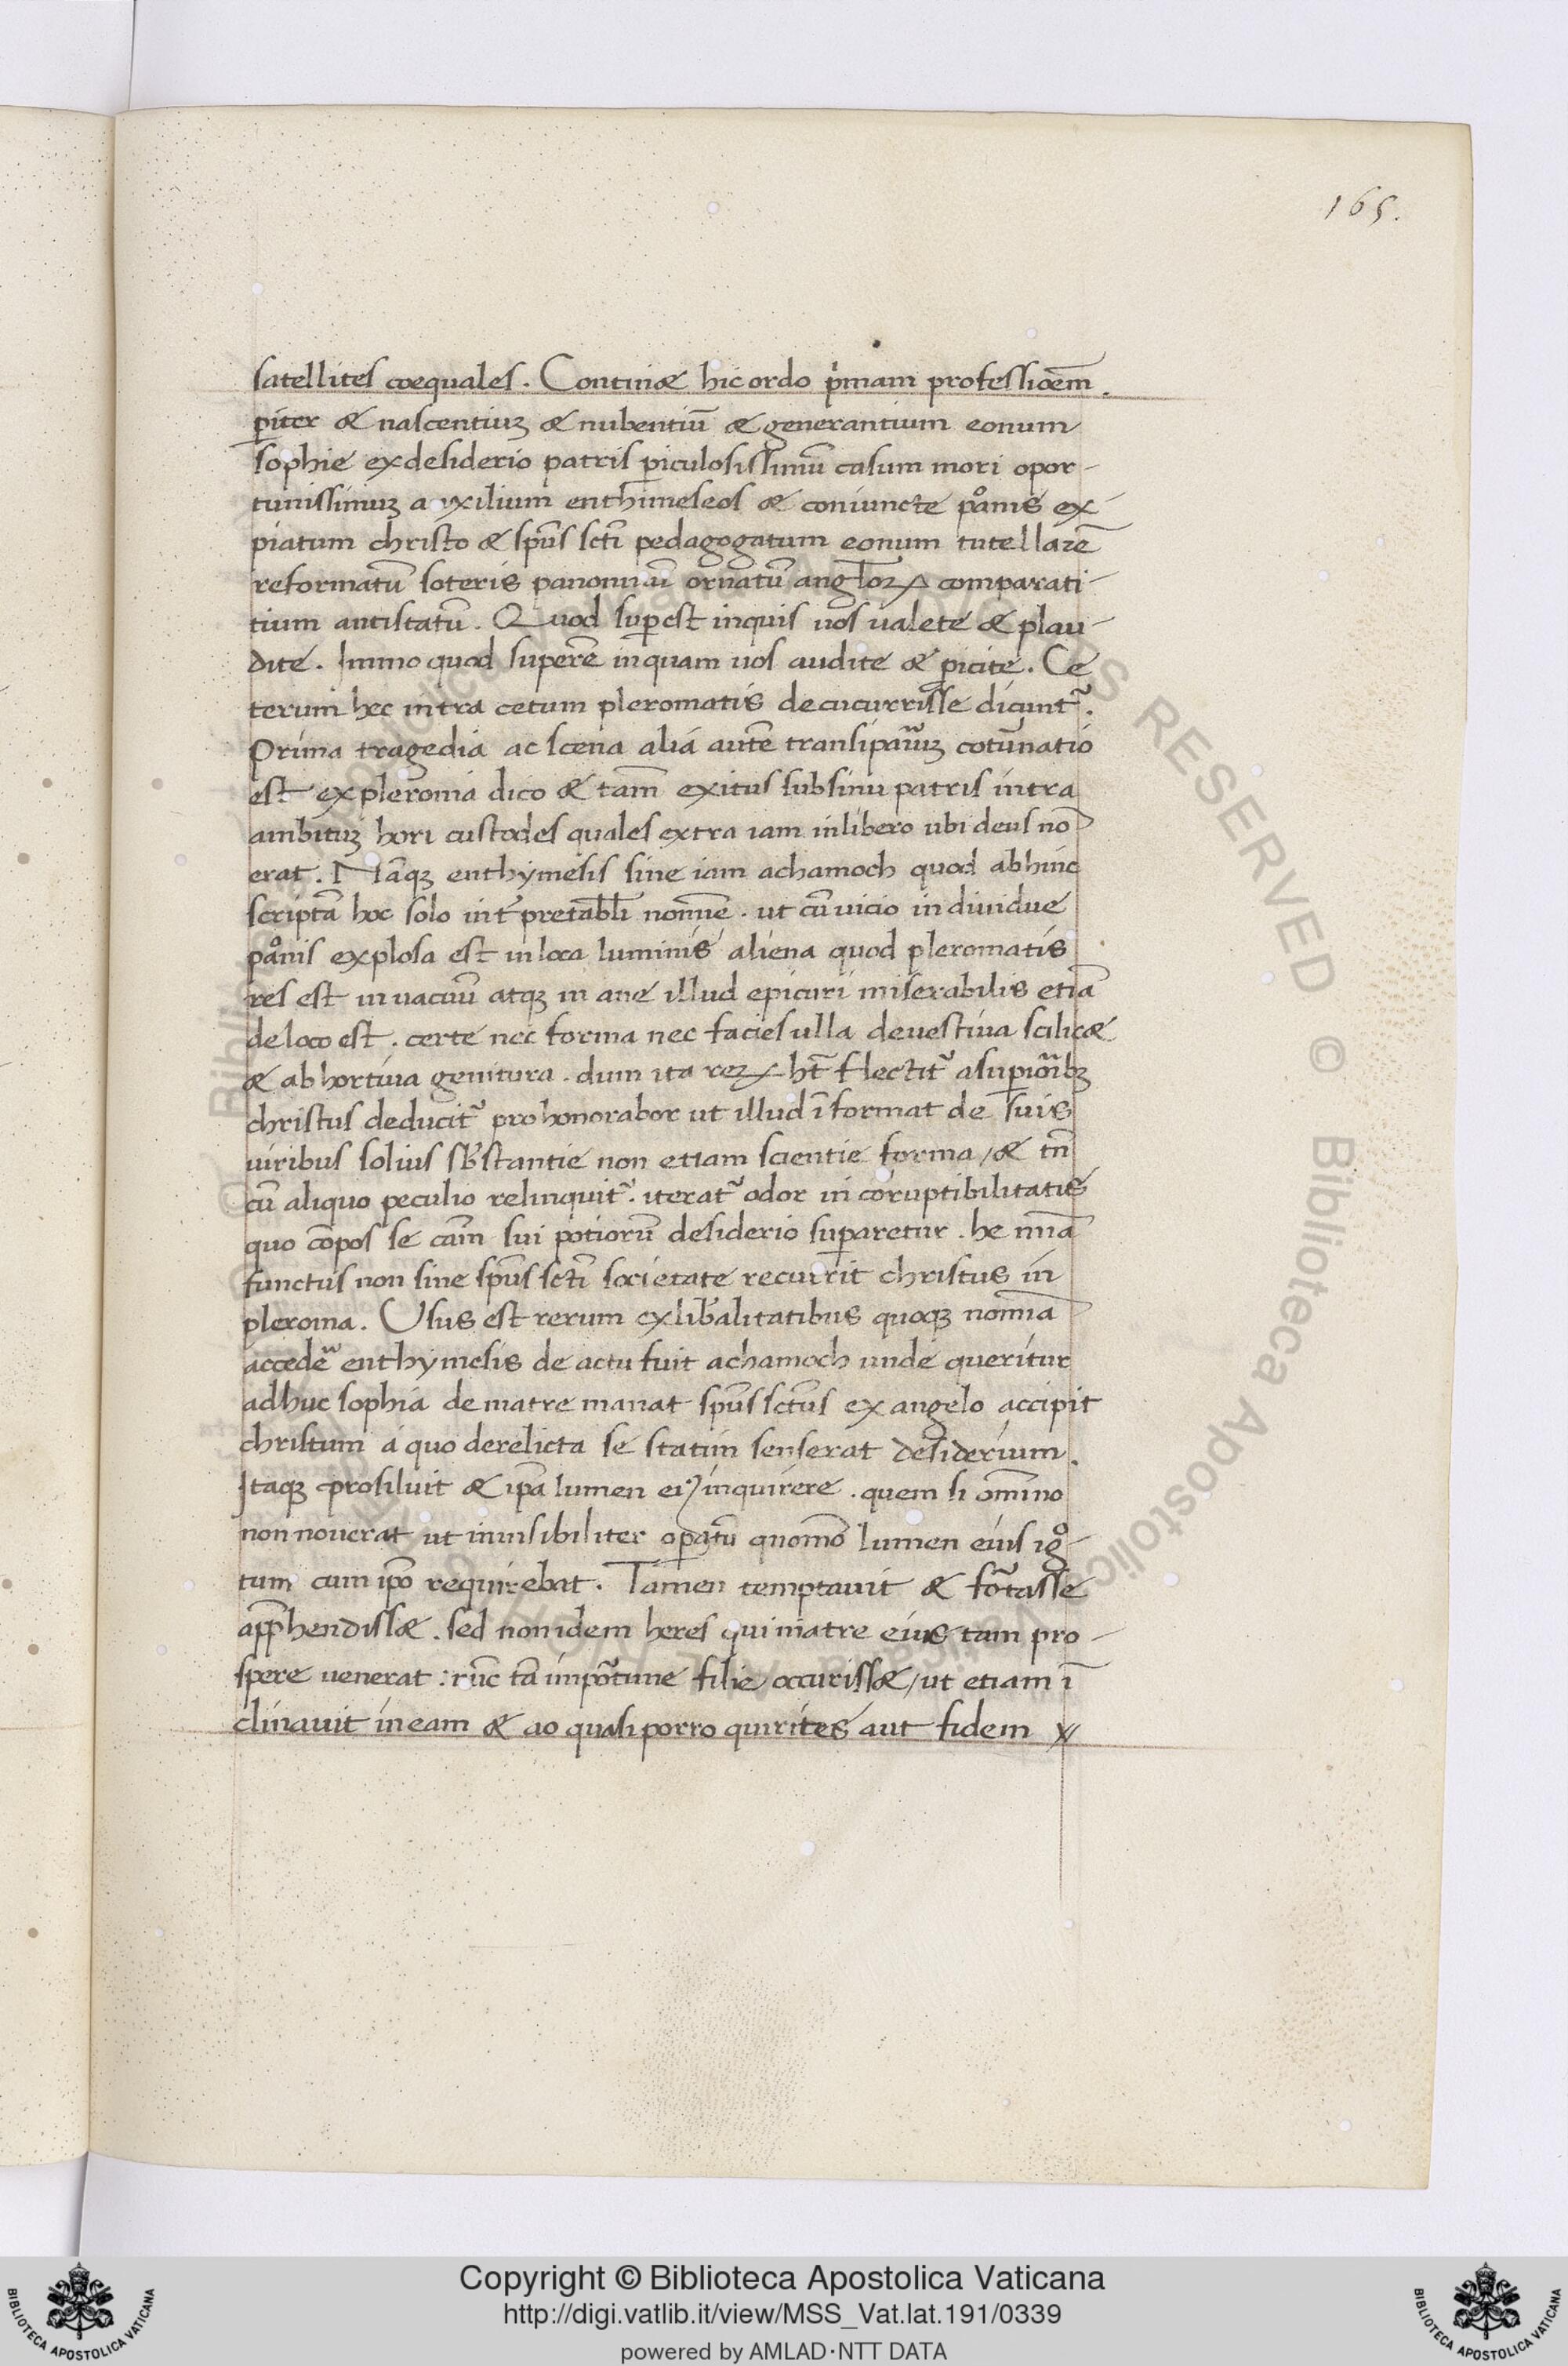 165.
satellites coequales. Contin& hic ordo p̓mam professioem̄.
ꝑiter & nascentiuꝫ & nubentiū & generantium eonum
sophie ex desiderio patris ꝑiculosissimū casum mori opor-
tunissimuꝫ auxilium enthimeseos & coniuncte pͦanis ex-
piatum christo & spūs scti̅ pedagogatum eonum tutellarē
reformatū soteris ornatū angl̅oꝝ comparati-
tium antistatū. Quod suꝑest inquis uos ualete & plau-
dite. Immo quod superē inquam uos audite & ꝑicite. Ce
terum hec intra cetum pleromatis decucurrisse dicunt᷑.
Prima tragedia ac scena alia autē cotūnatio
est ex pleroma dico & tam̄ exitus sub sinu patris intra
ambituꝫ hori custodes quales extra iam in libero ubi deus nō
erat. Nāqꝫ enthymesis sine iam achamoch quod abhinc
scriptā hoc solo int᷑pretabl̅i nom̄ne. ut cū uicio indiuidue
pͦanis explosa est in loca luminis aliena quod pleromatis
res est in uacuū atqꝫ in ane illud epicuri miserabilis etiā
de loco est. certe nec forma nec facies ulla devestiua scilic&
& abhortiua genitura. dum ita reꝝ ht̄ flectit᷑ a suꝑioribꝫ
christus deducit᷑ pro honorabor ut illud īformat de suis
uiribus solius sb̅stantie non etiam scientie forma / & tn̄
cū aliquo peculio relinquit᷑. iterat᷑ odor in coruptibilitatis
quo cōpos se cām sui potiorū desiderio suꝑaretur. he mīa
functus non sine spūs scti̅ societate recurrit christus in
pleroma. Usus est rerum ex lib̅alitatibus quoqꝫ nomīa
accedē enthymesis de actu fuit achamoch unde queritur
adhuc sophia de matre manat spūs sctūs ex angelo accipit
christum a quo derelicta se statim senserat desiderium.
Itaqꝫ prosiluit & ip̄a lumen ei᷒ inquirere. quem si om̄ino
non nouerat ut inuisibiliter oꝑatū quomō lumen eius igͦ-
tum cum ip̄o requirebat. Tamen temptauit & fortasse
app̄hendiss&. sed non idem heres qui matre eius tam pro-
spere uenerat: nūc tā importune filie occuriss& / ut etiam ī
clinauit in eam & ao quasi porro quirites aut fidem

Copyright © Biblioteca Apostolica Vaticana
http://digi.vatlib.it/view/MSS_Vat.lat.191/0339
powered by AMLAD·NTT DATA